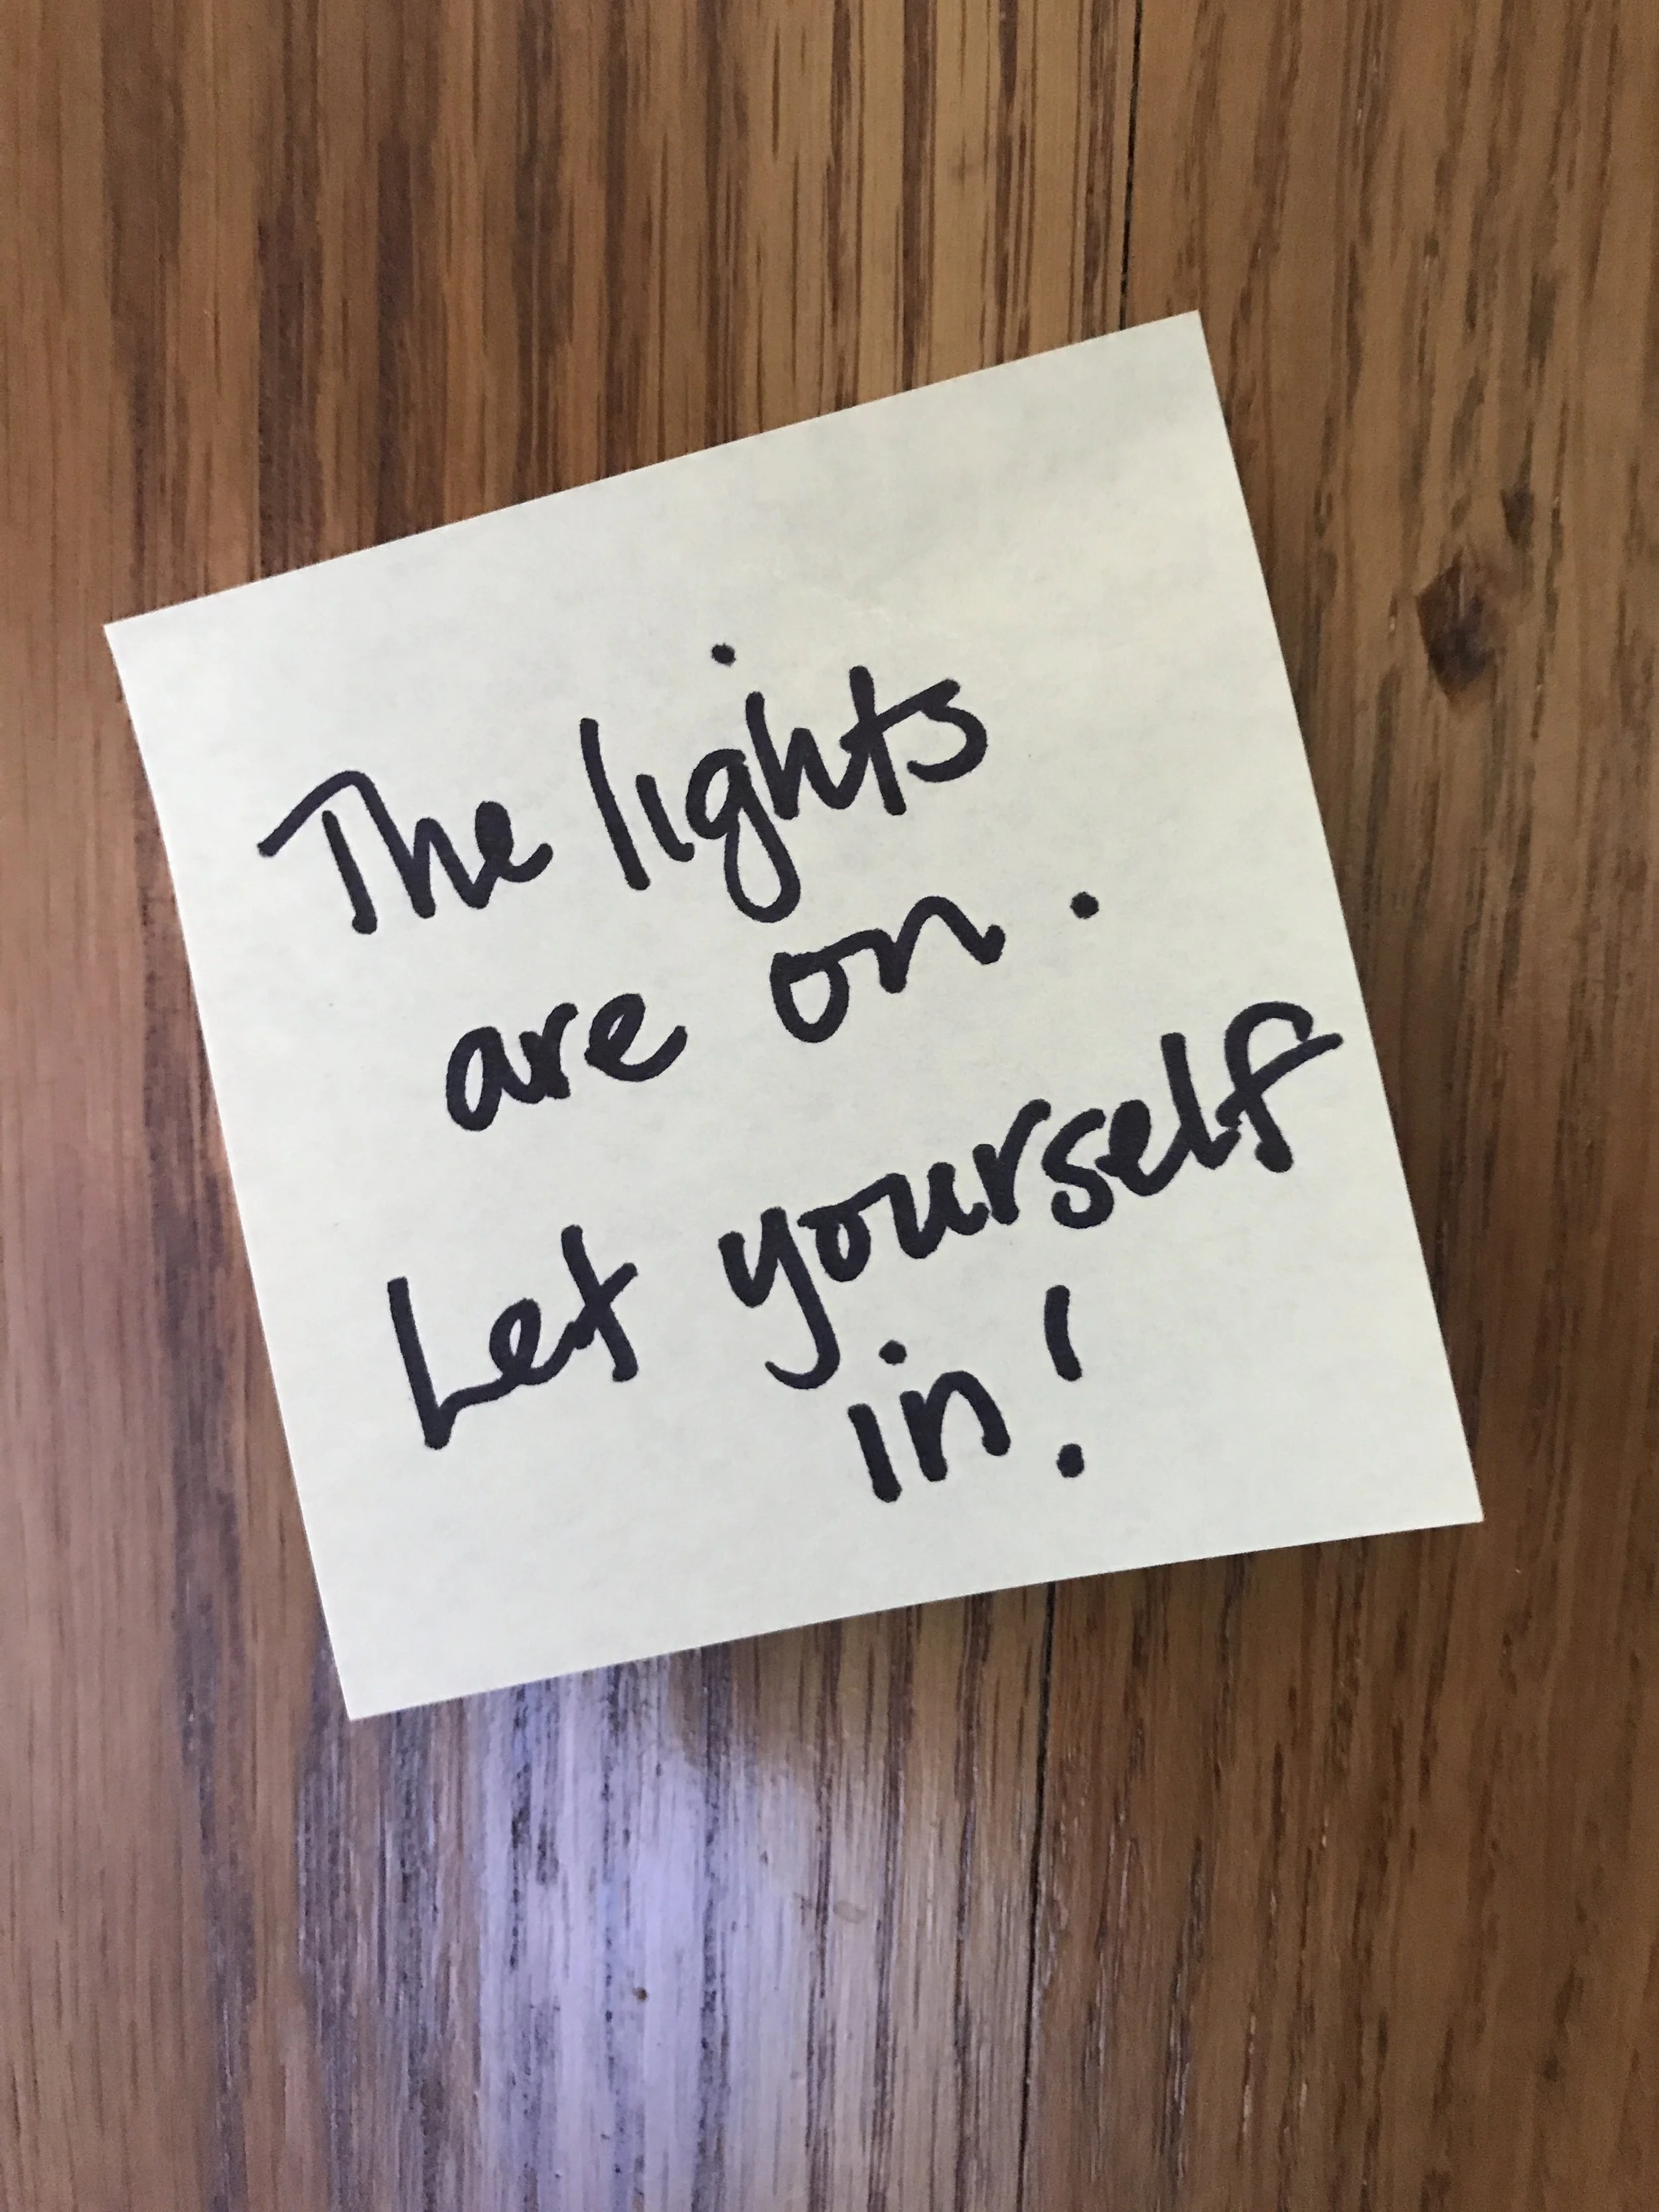 The lights
are on.
Let yourself
in!